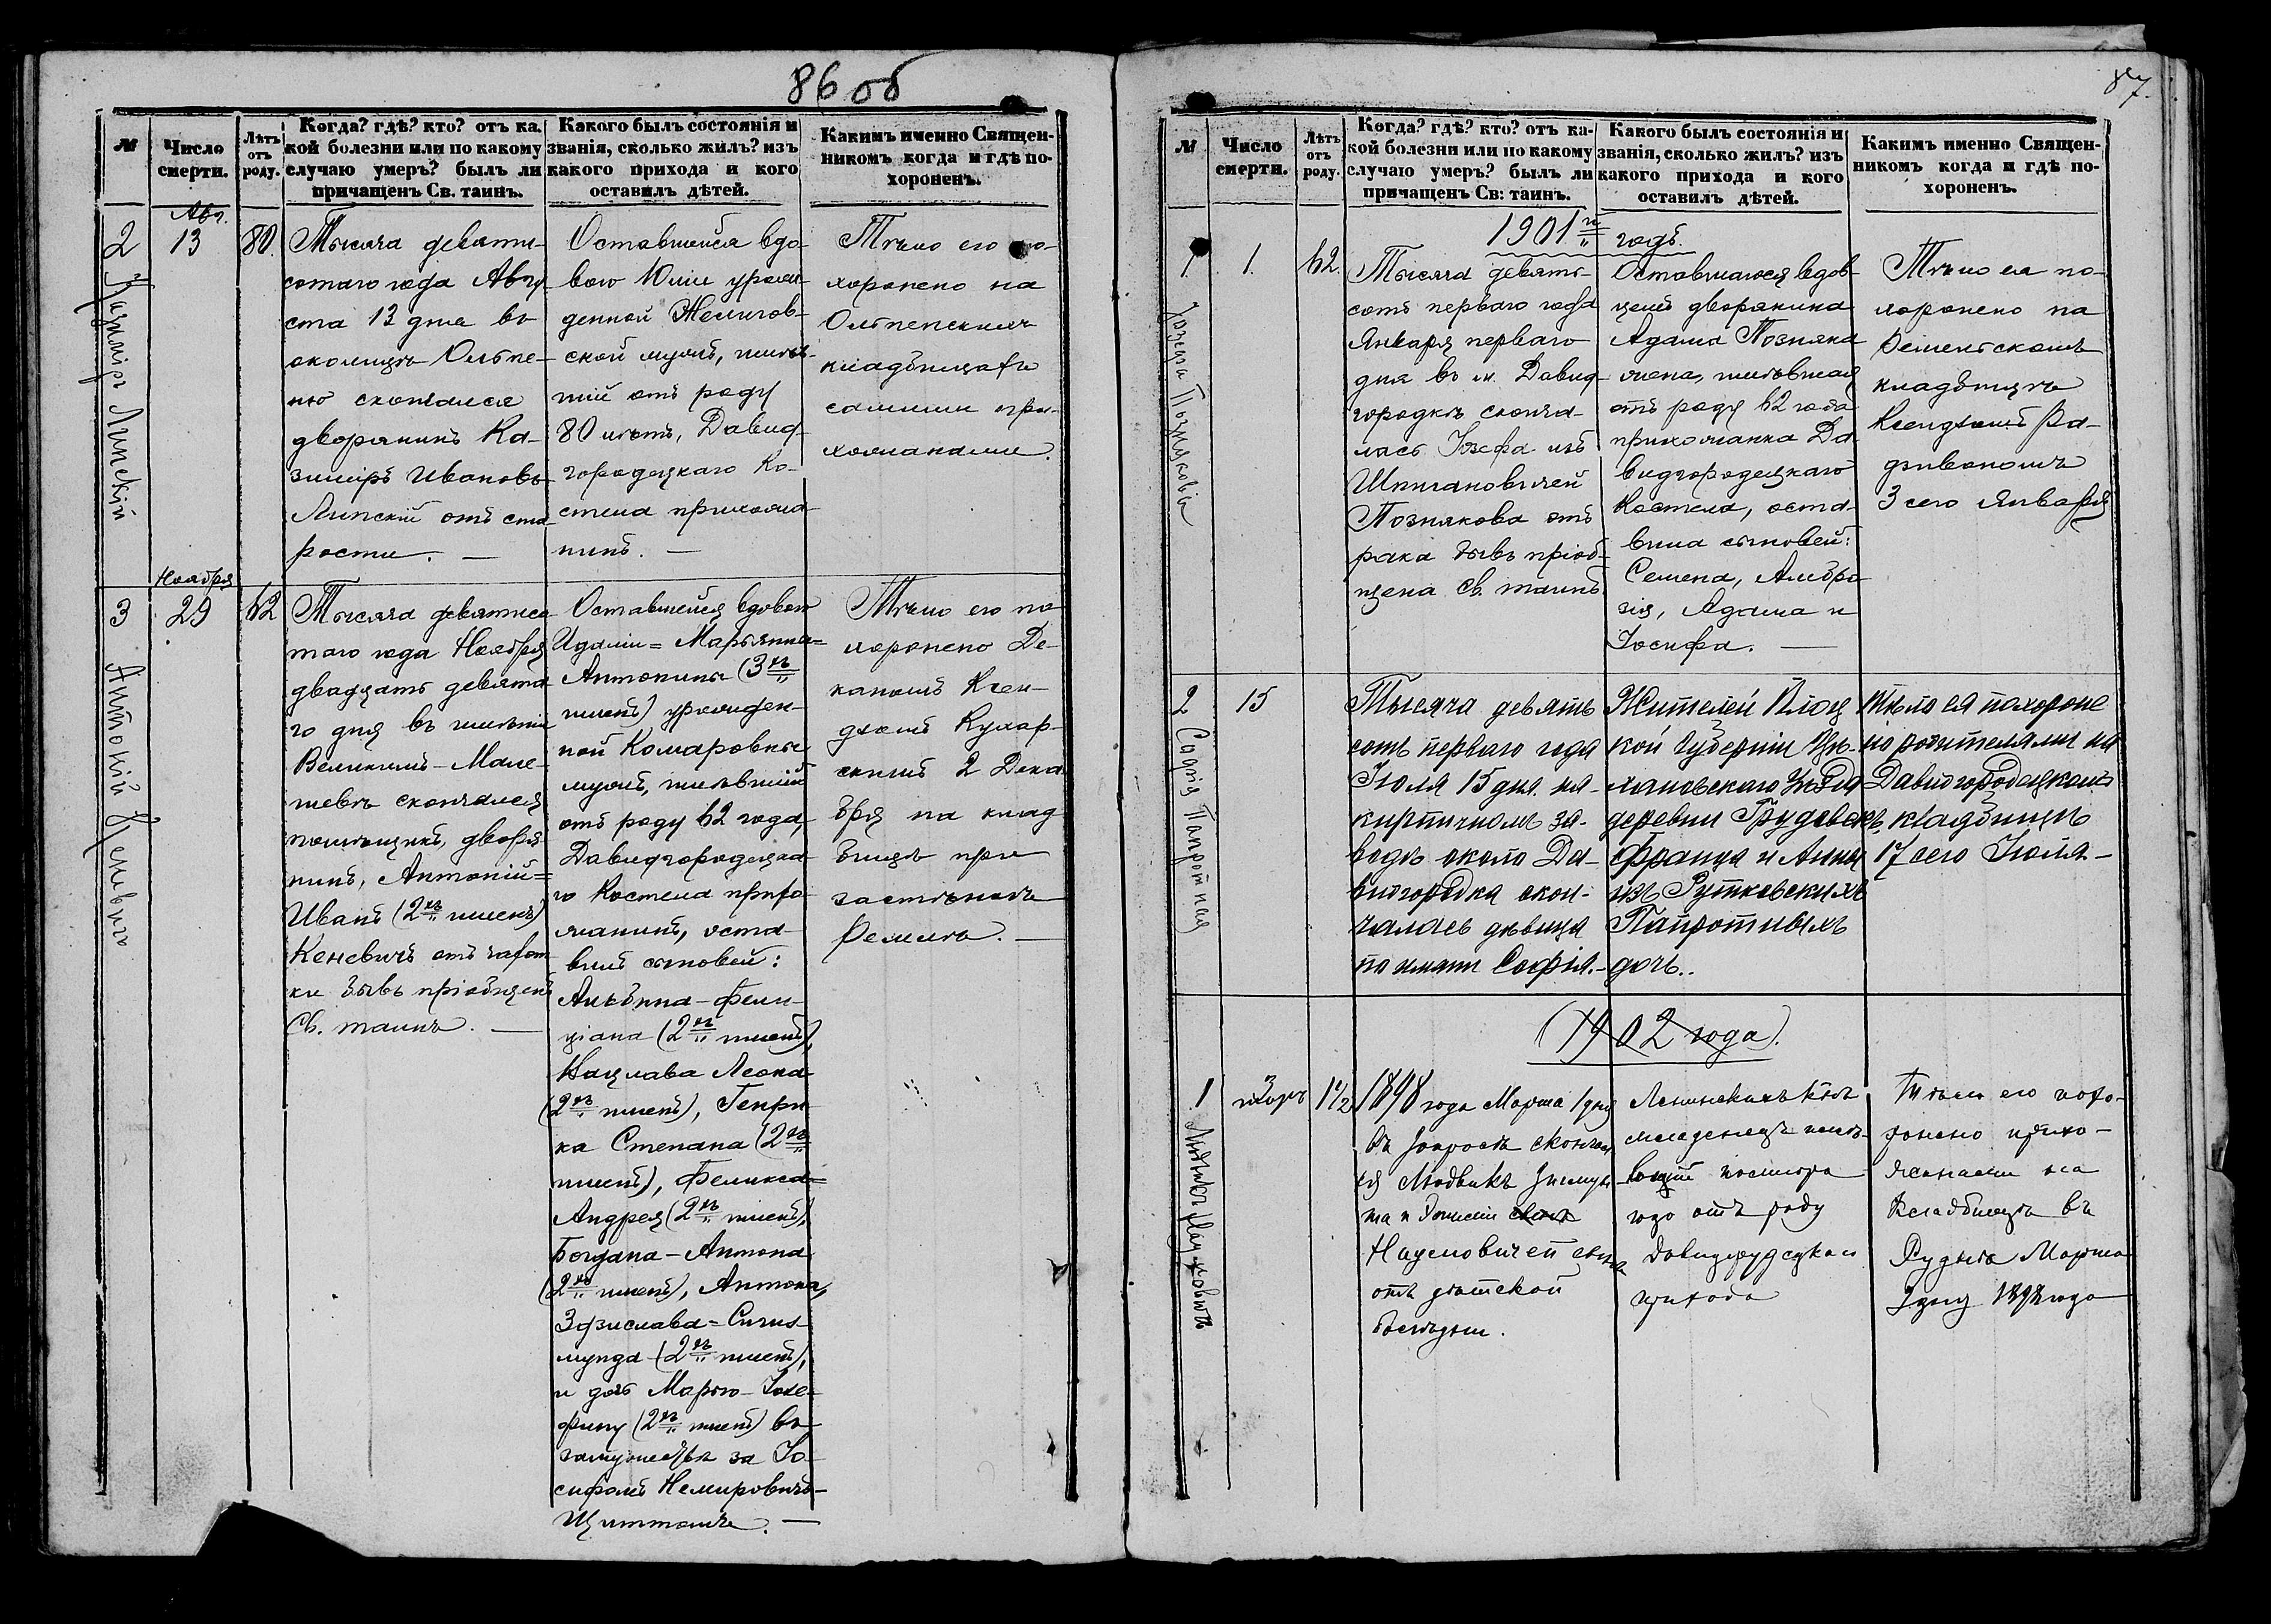 86 об
№
Число смерти.
Лѣтъ отъ роду.
Когда? гдѣ? кто? отъ ка-
кой болезни или по какому
случаю умеръ? былъ ли
причащенъ Св. таинъ.
Какого былъ состоянія и
званія, сколько жилъ? изъ
какого прихода и кого
оставилъ дѣтей.
Какимъ именно Священ-
никомъ когда и гдѣ по-
хороненъ.
2
Казиміръ Липскій
Авг.
13
80.
Тысяча девяти-
сотаго года Авгу-
ста 13 дня въ
околицѣ Ольпе-
нѣ скончался
дворянинъ Ка-
зиміръ Ивановъ
Липскій отъ ста-
рости. —
Оставшейся вдо-
вою Юліи урож-
денной Жемигов-
ской мужъ, жив-
шій отъ роду
80 лѣтъ, Давид-
городецкаго Ко-
стела прихожа-
нинъ. —
Тѣло его по-
хоронено на
Ольпенскихъ
кладбищахъ
самими при-
хожанами.
3
Антоній Кеневичъ
Ноября
29
62
Тысяча девятисо
таго года Ноября
двадцать девята
го дня въ имѣніи
Великимъ-Мале-
шевѣ скончался
помѣщикъ, дворя
нинъ, Антоній=
Иванъ (2хъ именъ)
Кеневичъ отъ чахот
ки бывъ пріобщенъ
Св. таинъ. —
Оставшейся вдовою
Идаліи=Маріянны=
Антонины (3хъ
именъ) урожден-
ной Комаровны
мужъ, жившій
отъ роду 62 года,
Давидгородецка-
го Костела прихо-
жанинъ, оста-
вилъ сыновей:
Альбина-Фели-
ціана (2хъ именъ),
Вацлава Леона
(2хъ именъ), Генри-
ка Степана (2хъ
именъ), Феликса=
Андрея (2хъ именъ),
Богдана-Антона
(2хъ именъ), Антона,
Здзислава-Сигиз
мунда (2хъ именъ),
и дочь Марію-Іозе-
фину (2хъ именъ) въ
замужествѣ за Іо-
сифомъ Немировичъ-
Щиттомъ. —
Тѣло его по
хоронено Де-
каномъ Ксен-
дзомъ Кухар-
скимъ 2 Дека
бря на клад
бищѣ при
застѣнкѣ
Ремель. —
87.
№
Число смерти.
Лѣтъ отъ роду.
Когда? гдѣ? кто? отъ ка-
кой болезни или по какому
случаю умеръ? былъ ли
причащенъ Св: таинъ.
Какого былъ состоянія и
званія, сколько жилъ? изъ
какого прихода и кого
оставилъ дѣтей.
Какимъ именно Священ-
никомъ когда и гдѣ по-
хороненъ.
1901й годъ.
1
Іозефа Познякова
1.
62.
Тысяча девять-
сотъ перваго года
Января перваго
дня въ м. Давид-
городкѣ сконча-
лась Іозефа изъ
Шпигановичей
Познякова отъ
рака бывъ пріоб-
щена св. таинъ
Оставшагося вдов-
цемъ дворянина
Адама Позняка
жена, жившая
отъ роду 62 года
прихожанка Да-
видгородецкаго
Костела, оста-
вила сыновей:
Семена, Амбро
зія, Адама и
Іосифа. —
Тѣло ея по-
хоронено на
Ремельскомъ
кладбищѣ
Ксендзомъ Ра-
дзивономъ
3 сего Января
2
Софія Папротная
15
Тысяча девять
сотъ перваго года
Іюля 15 дня. на-
кирпичномъ за-
водѣ около Да-
видгородка скон-
чалась дѣвица
по имяни Софія.-
Жителей Плоц
кой Губерніи Це-
хановскаго Уѣзда
деревни Грудовскъ
Франца и Анны
изъ Рутковскихъ
Папротныхъ
дочь..
Тѣло ея похороне
но родителями на
Давидгородецкомъ
кладбищѣ
17 сего Іюля-
(1902 года).
1
1 1/2
1898 года Марта 1 дня
скончал
ся Людвикъ
Наумовичей сынъ
отъ дѣтской
болѣзни.
младенецъ
полтора
года отъ роду
Давидгродецкаго
прихода
Тѣло его похо-
ронено прихо-
жанами на
кладбищѣ въ
Марта
3 дня 1898 года